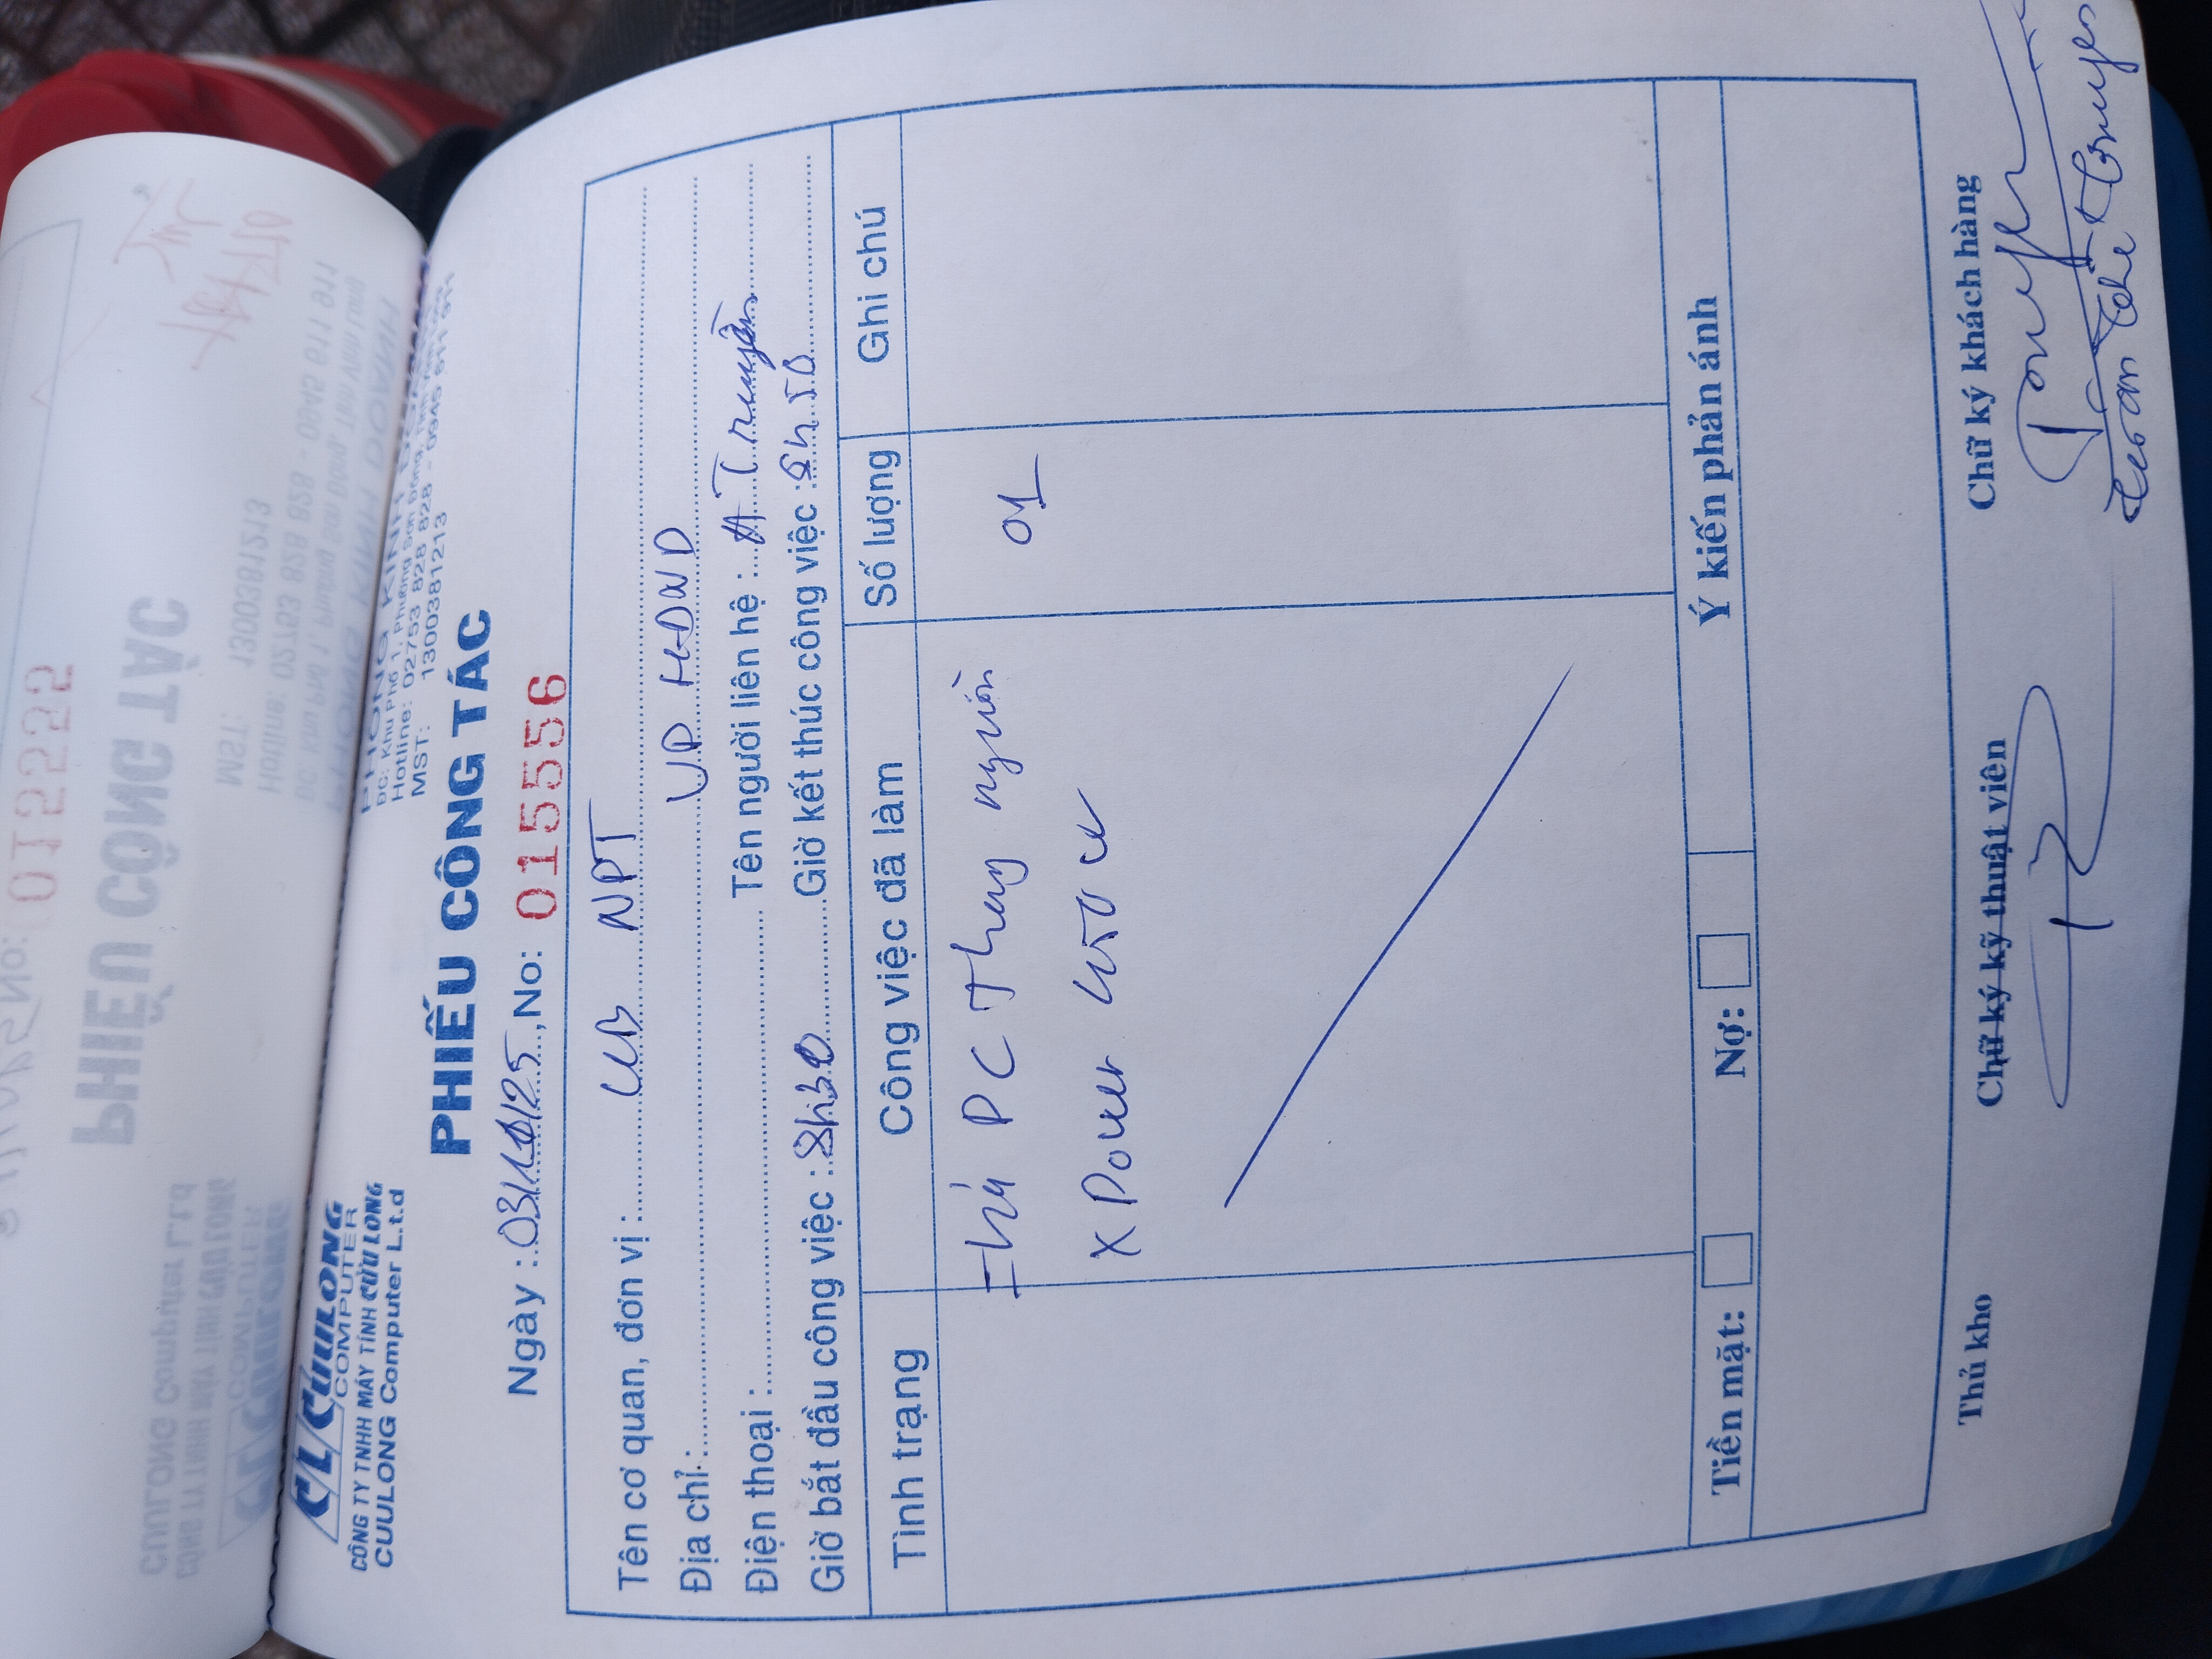 CLCUULONG
COMPUTER
CÔNG TY TNHH MÁY TÍNH CỬU LONG
CUULONG Computer L.t.d
MST: 1300381213
PHIẾU CÔNG TÁC
Ngày : 03/10/25, No: 015556
Tên cơ quan, đơn vị : UB NPT
Địa chỉ : VP HĐND
Điện thoại : Tên người liên hệ : A Truyền
Giờ bắt đầu công việc : 8h30 Giờ kết thúc công việc : 8h50
Tình trạng
Công việc đã làm
Số lượng
Ghi chú
PC Thay nguồn
01
X Power
Tiền mặt:
Nợ:
Ý kiến phản ánh
Thủ kho
Chữ ký kỹ thuật viên
Chữ ký khách hàng